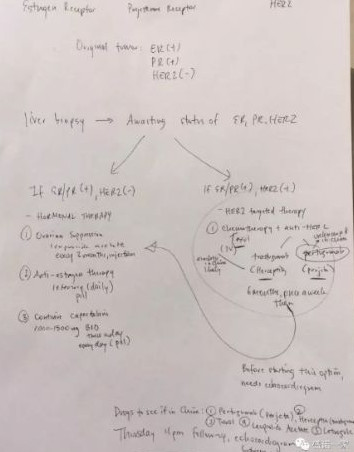 Estrogen Receptor Progesterone Receptor HER2
Original tumor: ER(+)
PR(+)
HER2(-)
liver biopsy → Awaiting status of ER, PR, HER2
If ER/PR(+), HER2(-)
- HORMONAL THERAPY
① Ovarian Suppression
leuprolide acetate
every 3 months, injection
② Anti-estrogen therapy
letrozole (daily)
pill
③ Continue capecitabine
1000-1500mg BID
twice a day
every day (pill)
If ER/PR(+), HER2(+)
- HER2 targeted therapy
① Chemotherapy + anti-HER2
taxol
(IV)
trastuzumab
(Herceptin)
pertuzumab
(perjeta)
available in China
likely
6 months, once a week,
then
Before starting this option,
needs echocardiogram
Drugs to see if in China: ① Pertuzumab (Perjeta), ② Herceptin
③ Taxol ④ Leuprolide Acetate ⑤ Letrozole
Thursday 4pm followup, echocardiogram